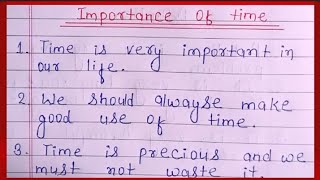 Importance of time
1. Time is very important in
our life.
2. We should alwayse make
good use of time.
3. Time is precious and we
must not waste it.